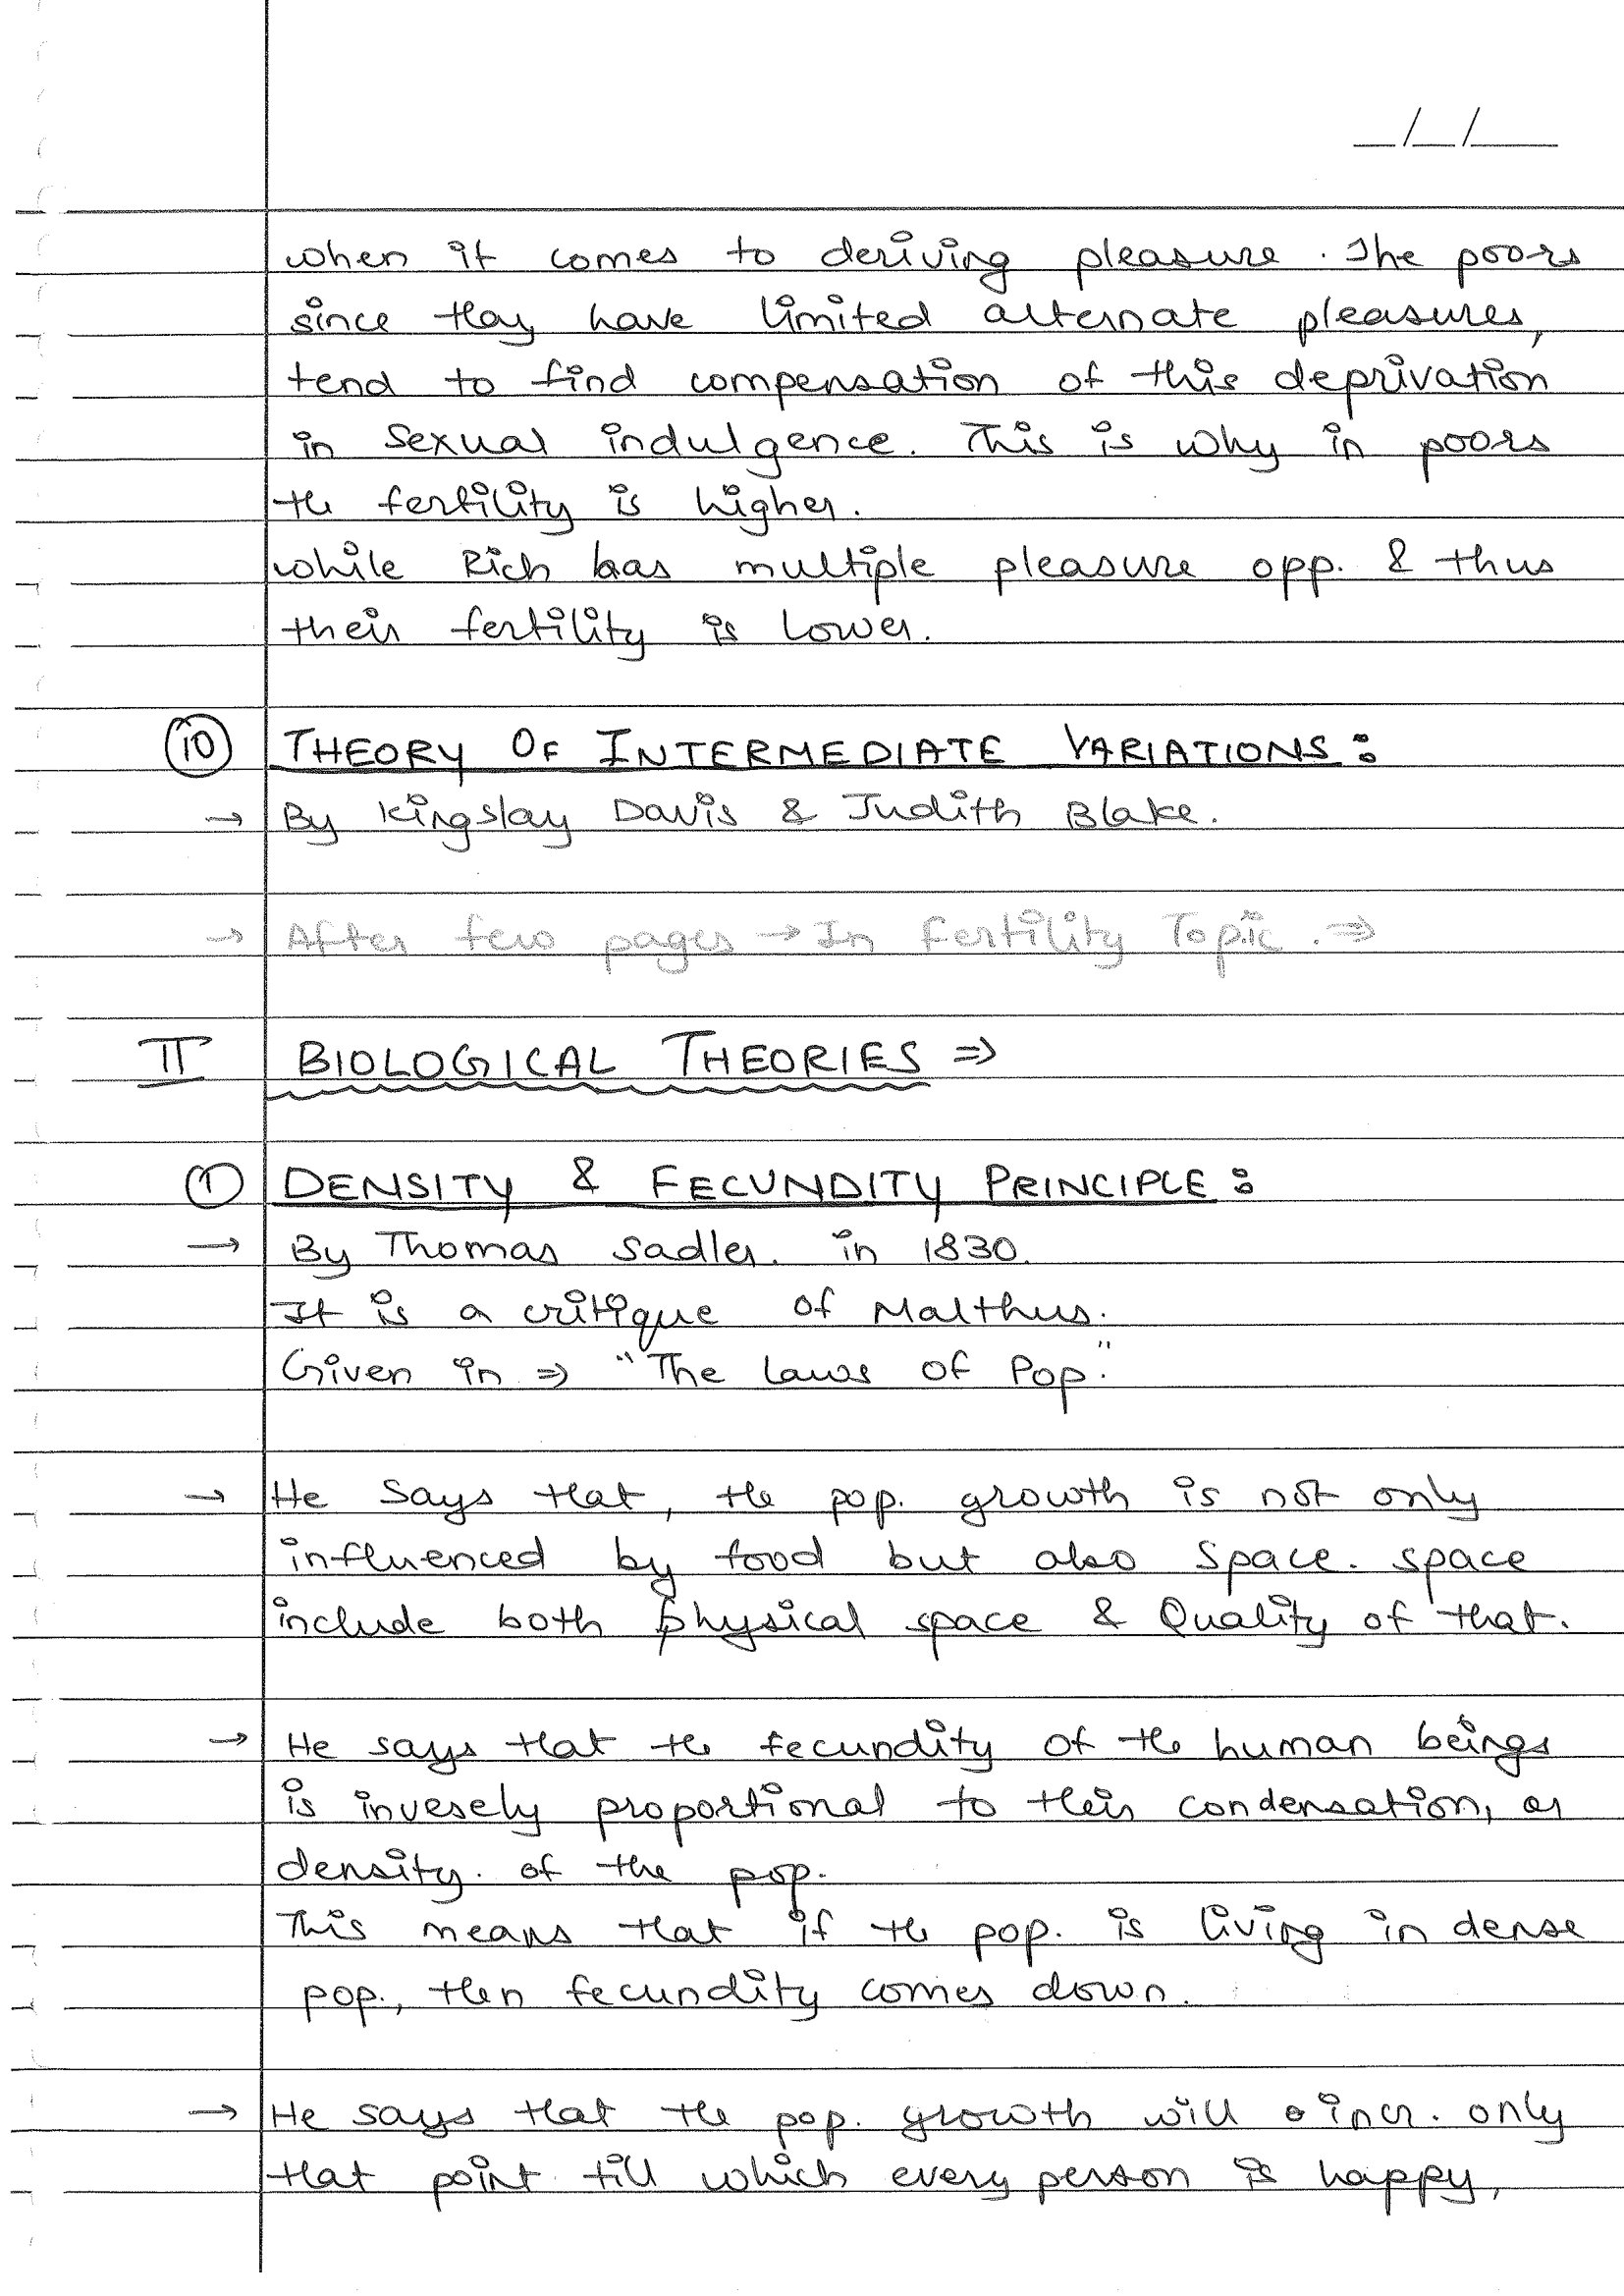 __/__/____
when it comes to deriving pleasure. The poors
since they have limited alternate pleasures,
tend to find compensation of this deprivation
in sexual indulgence. This is why in poors
the fertility is higher.
while Rich has multiple pleasure opp. & thus
their fertility is lower.
⑩ THEORY OF INTERMEDIATE VARIATIONS :
→ By Kingslay Davis & Judith Blake.
→ After few pages → In Fertility Topic. ⇒
II BIOLOGICAL THEORIES ⇒
① DENSITY & FECUNDITY PRINCIPLE :
→ By Thomas Sadler. in 1830.
It is a critique of Malthus.
Given in ⇒ "The Laws of Pop."
→ He says that, the pop. growth is not only
influenced by food but also space. space
include both physical space & Quality of that.
→ He says that the fecundity of the human beings
is invesely proportional to their condensation, or
density. of the pop.
This means that if the pop. is living in dense
pop., then fecundity comes down.
→ He says that the pop. growth will incr. only
that point till which every person is happy,